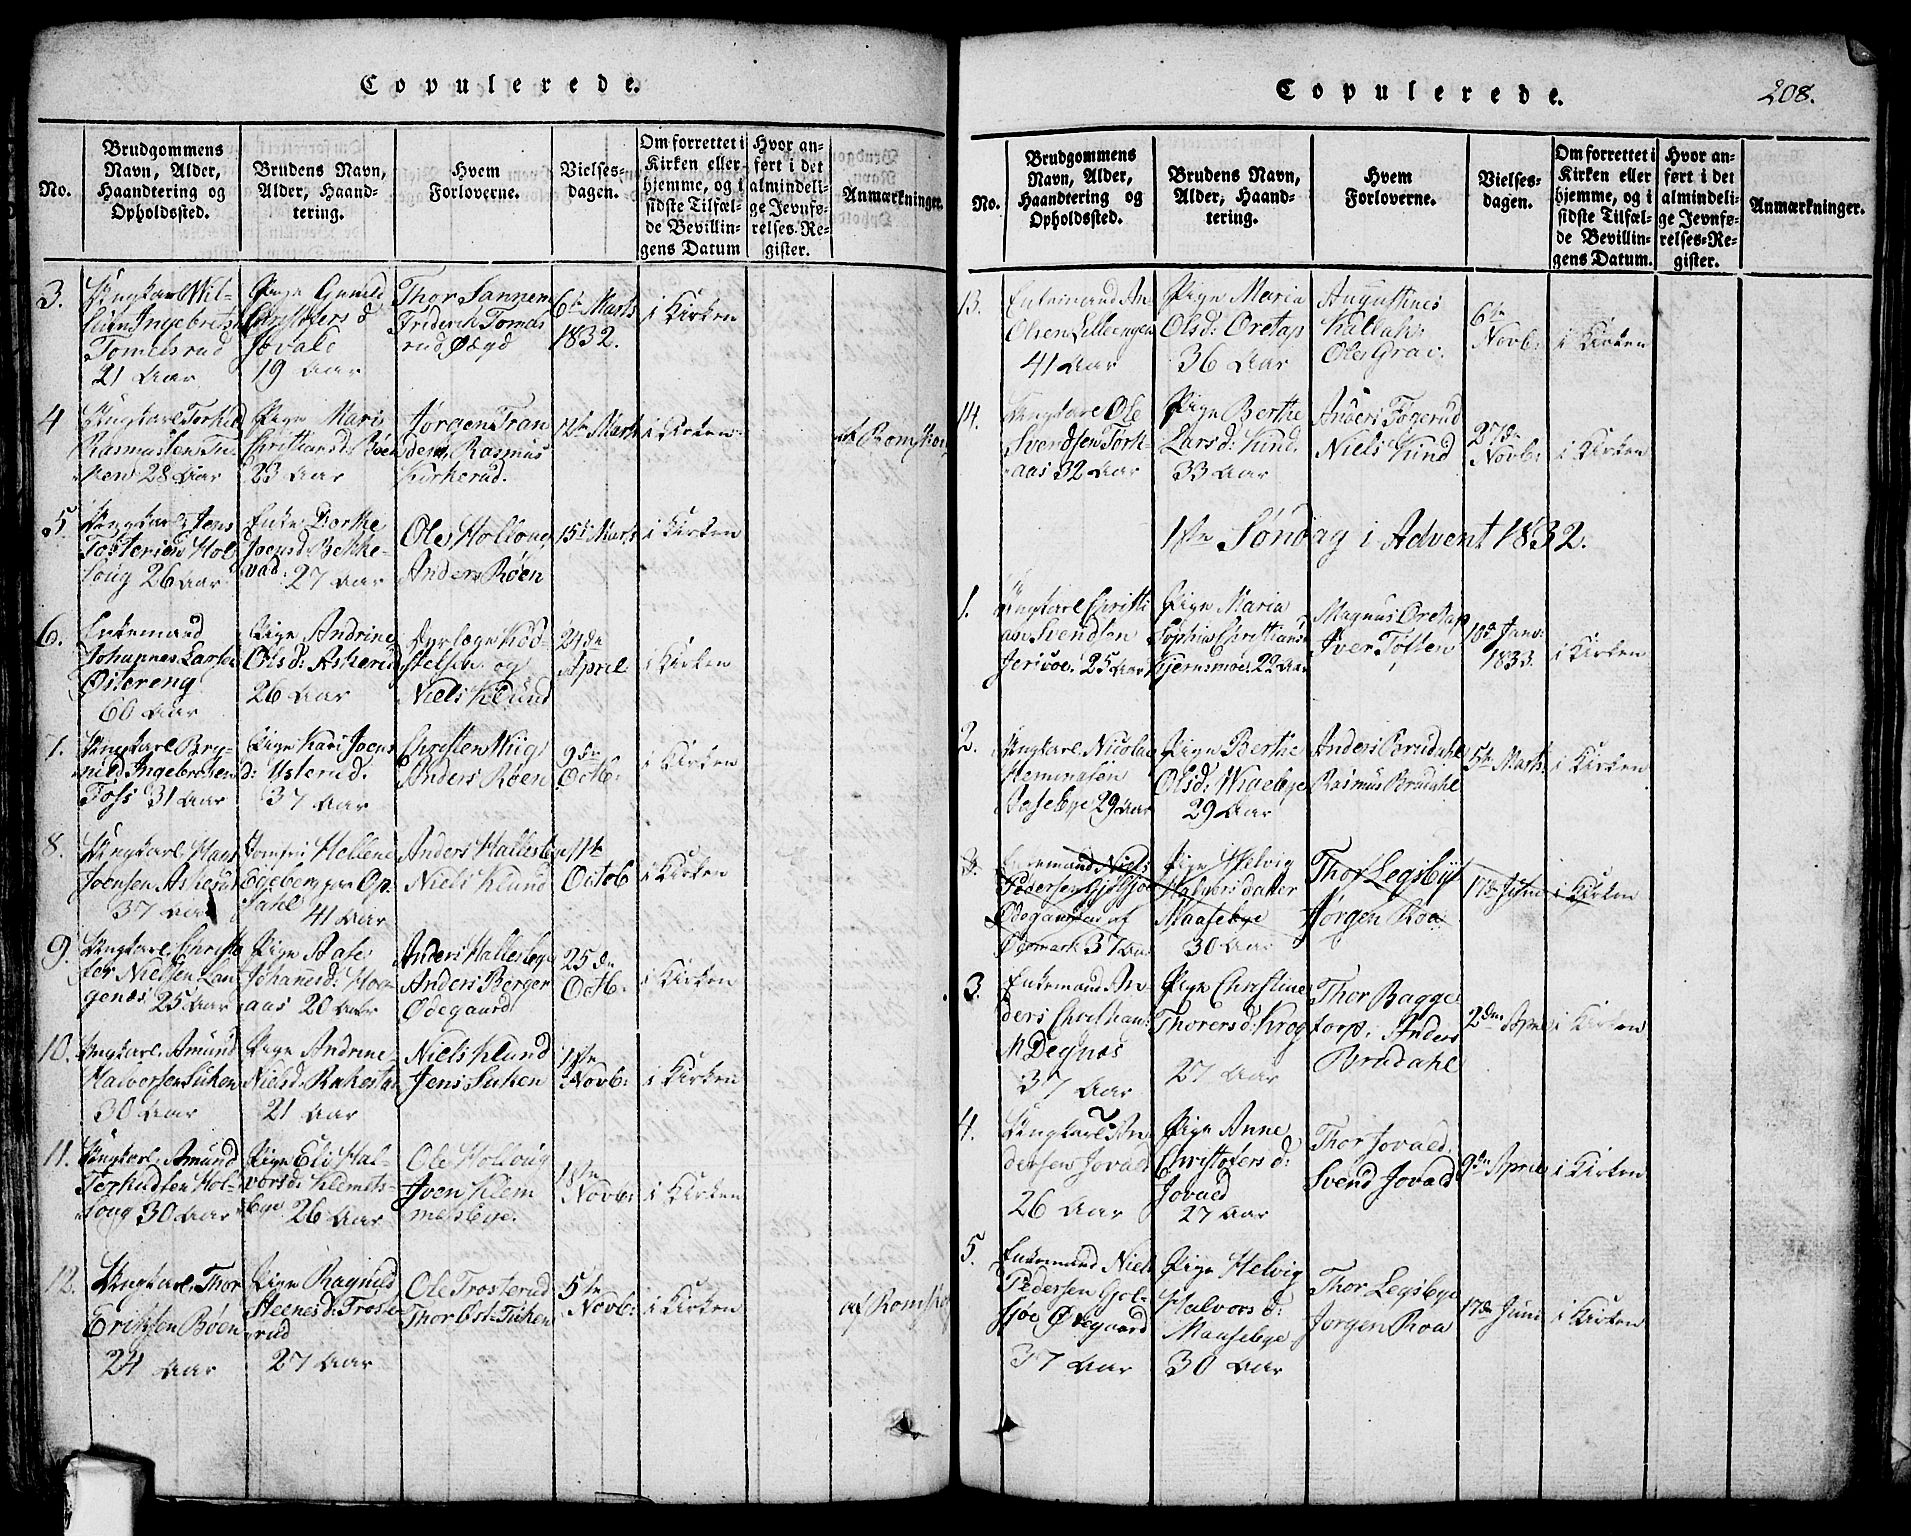 Copulerede.
No.
Brudgommens
Navn, Alder,
Haandtering og
Opholdssted.
Brudens Navn,
Alder, Haand-
tering.
Hvem
Forloverne.
Vielses-
dagen.
Om forrettet i
Kirken eller
hjemme, og i
sidste Tilfæl-
de Bevillin-
gens Datum
Hvor an-
ført i det
almindeli-
ge Jevnfø-
relses-Re-
gister.
Anmærkninger.
3.
Ungkarl Wil-
Ingebrets
Tomelsrud
21 Aar
Pige Gunild
Christofersd
Jovald
19 Aar
Thor Sannem
Friderik Tomas
rud Øægd
6te Marts
1832.
i Kirken
4
Ungkarl Torkild
Rasmussen Tu-
ken 28 Aar
Pige Mari
Christiansd: Böen
23 Aar
Jörgen Tran
dem, Rasmus
Kirkerud.
12te Marts
i Kirken
af Romskog
5
Ungkarl Jens
Tostensen Hol-
loug 26 Aar
Enke Dorthe
Joensd: Bekke-
vad. 27 Aar
Ole Holloug
Anders Röen
15de Marts
i Kirken
6.
Enkemand
Johannes Larsen
Östereng
60 Aar
Pige Andrine
Olsd: Askerud
26 Aar
Dyrlæge Kod-
stelsen og
Niels Klund
24de
April
i Kirken
7.
Ungkarl Bry-
nild Ingebretsen
Foss 31 Aar
Pige Kari Joens
d: Usterud.
37 Aar
Christen Wiig
Anders Röen
9de
Octb:
i Kirken
8.
Ungkarl Hans
Joensen Askerud
37 Aar
Jomfru Hellene
Egeberg paa Op-
sahl 41 Aar
Anders Hallesby
Niels Klund
11te
Octob
i Kirken
9.
Ungkarl Christo
fer Nielsen Lan
genæs 25 Aar
Pige Aase
Johannesd: Hog-
aas 20 Aar
Anders Hallesbye
Anders Berger
Ödegaard
25de
Octb:
i Kirken
10.
Ungkarl Amund
Halvorsen Tuken
30 Aar
Pige Andrine
Nielsd: Rakestad
21 Aar
Niels Klund
Jens Tuken
1ste
Novb:
i Kirken
11.
Ungkarl Amund
Terkildsen Hol-
loug 30 Aar
Pige Eli Hal-
vorsd: Klemets-
bye 26 Aar
Ole Holloug
Iven Klem
metsbye.
1ste
Novb:
i Kirken
12.
Ungkarl Thor
Eriksen Böen
24 Aar
Pige Ragnild
Steenesd: Troste-
rud
27 Aar
Ole Trosterud
Thor Öst: Tuken
5te
Novb:
i Kirken
af Romskog
Copulerede.
208.
No.
Brudgommens
Navn, Alder,
Haandtering og
Opholdssted.
Brudens Navn,
Alder, Haand-
tering.
Hvem
Forloverne.
Vielses-
dagen.
Om forrettet i
Kirken eller
hjemme, og i
sidste Tilfæl-
de Bevillin-
gens Datum.
Hvor an-
ført i det
almindeli-
ge Jevnfø-
relses-Re-
gister.
Anmærkninger.
13.
Enkemand An
Olsen Lilleengen
41 Aar
Pige Maria
Olsd: Oretap
36 Aar
Augustines
Kallak:
Ole Grav.
6te
Novb:
i Kirken
14.
Ungkarl Ole
Svendsen Tork-
aas 32 Aar
Pige Berthe
Larsd: Kund.
33 Aar
Anders Fögerud
Niels Kund
27de
Novb:
i Kirken
1ste Söndag i Advent 1832.
1.
Ungkarl Christi
an Svendsen
Jericoe 25 Aar
Pige Maria
Sophia Christiansd
Kjernsmoe 22 Aar
Magnus Oretap
Iver Tosten
10de Janv:
1833.
i Kirken
2.
Ungkarl Nicolai
Hemingsen
Aasebye 29 Aar
Pige Berthe
Olsd: Wigebye
29 Aar
Anders Brudahl
Rasmus Brudahl
5te Marts
i Kirken
3.
Enkemand Niels
Pedersen Gjölsjö
Ödegaarden af
Ödemark 37 Aar
Pige Helvig
Halvorsdatter
Maasebye
30 Aar
Thor Legsbye
Jörgen Roa
17de Juni
i Kirken
3.
Enkemand An
ders Christian
M Degnæs
37 Aar
Pige Christine
Thorersd: Krog
27 Aar
Thor Bagge
torp. Anders
Brudahl
2den April
i Kirken
4.
Ungkarl An
dersen Jovald
26 Aar
Pige Anne
Christofers d:
Jovald
27 Aar
Thor Jovald
Svend Jovald
9de April
i Kirken
5.
Enkemand Niels
Pedersen Göl-
sjöe Ödegaard
37 Aar
Pige Helvig
Halvors d:
Maasebye
30 Aar
Thor Legsbye
Jorgen Roa
17de Juni
i Kirken